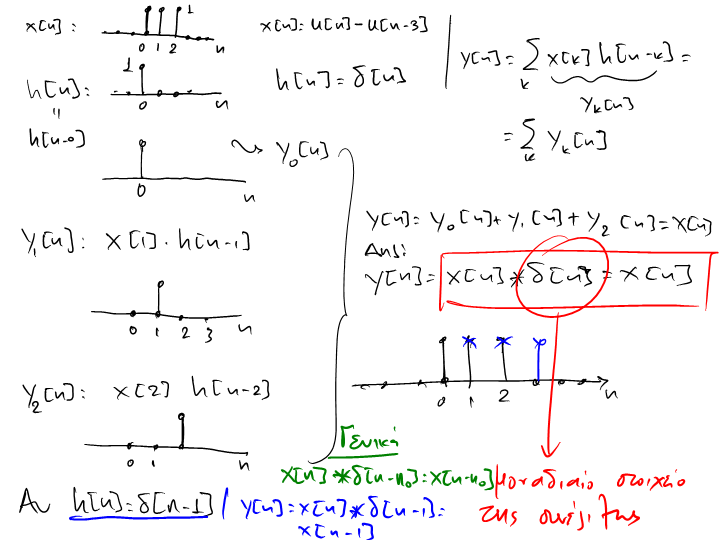 x[n]: 1
0 1 2 n
x[n]: u[n]-u[n-3]
h[n]: 1
0 n
h[n]=δ[n]
"
h[n-0]
0 n
→ y₀[n]
y[n]= Σ x[k] h[n-k] =
k
yₖ[n]
= Σ yₖ[n]
k
y₁[n]: x[1]·h[n-1]
0 1 2 3 n
y[n]: y₀[n]+y₁[n]+y₂[n]=x[n]
Απ:
y[n]= x[n]*δ[n]=x[n]
0 1 2 n
y₂[n]: x[2] h[n-2]
0 1 n
Γενικά
x[n]*δ[n-n₀]=x[n-n₀]
μοναδιαίο στοιχείο
της συνέλιξης
Αν h[n]=δ[n-1] / y[n]=x[n]*δ[n-1]=
x[n-1]